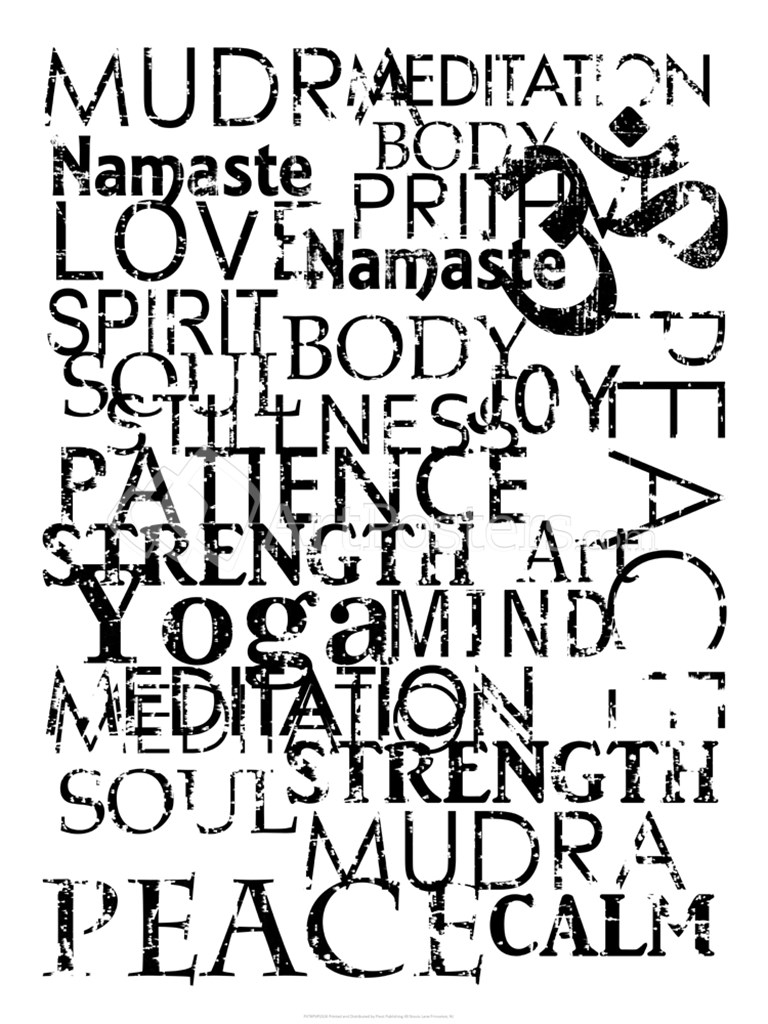 MUDRA MEDITATION
BODY
Namaste
PRITH
LOVE
Namaste
ॐ
SPIRIT
BODY
SOUL
JOY
STILLNESS
PEACE
PATIENCE
ArtPosters.com
STRENGTH
Yoga MIND
MEDITATION
MEDITATION
STRENGTH
SOUL
MUDRA
PEACE CALM